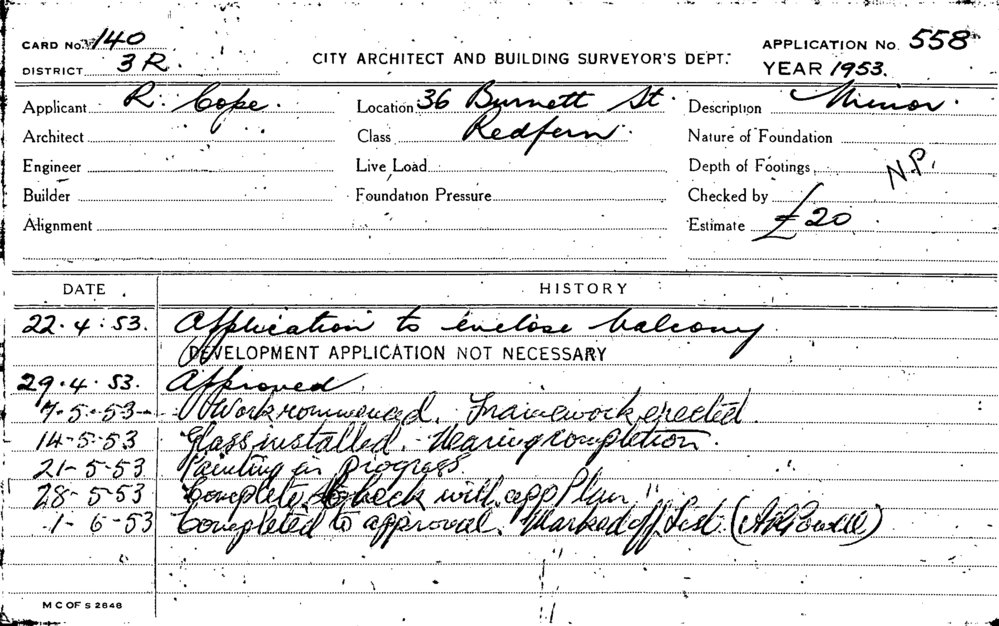 CARD No. 140
DISTRICT 3 R.
CITY ARCHITECT AND BUILDING SURVEYOR'S DEPT.
APPLICATION No. 558
YEAR 1953.
Applicant R. Cope.
Location 36 Burnett St.
Description Minor.
Architect
Class Redfern.
Nature of Foundation
Engineer
Live Load
Depth of Footings N.P.
Builder
Foundation Pressure
Checked by
Alignment
Estimate £20
DATE HISTORY
22.4.53. Application to enclose balcony
DEVELOPMENT APPLICATION NOT NECESSARY
29.4.53. Approved.
7-5-53- Work commenced. Framework erected
14-5-53 Glass installed. Nearing completion.
21-5-53 Painting in progress.
28-5-53 Complete. Check with app Plan
1-6-53 Completed to approval. Marked off List.
M C OF S 2848